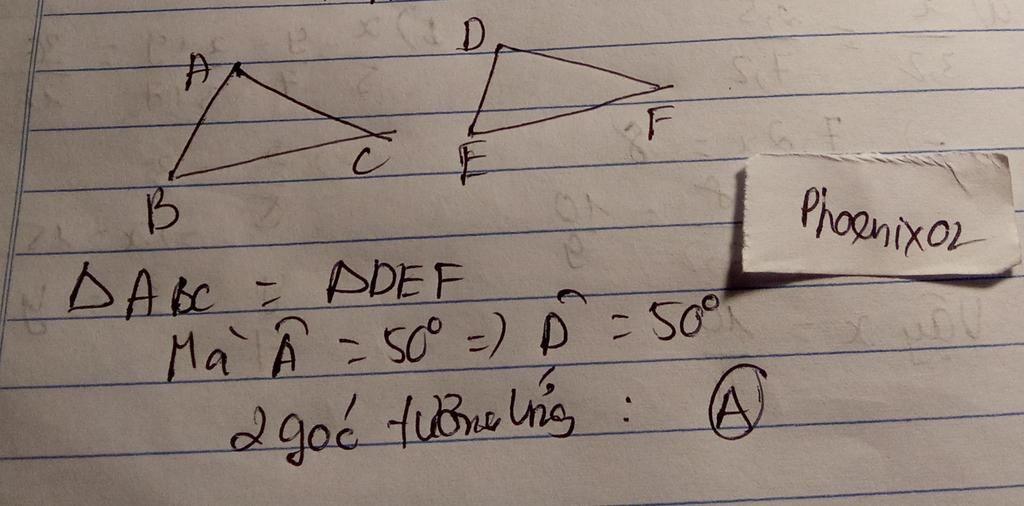 A
B
C
D
E
F
Phoenix02
ΔABC = ΔDEF
Mà Â = 50° => D̂ = 50°
2 góc tương ứng : Ⓐ